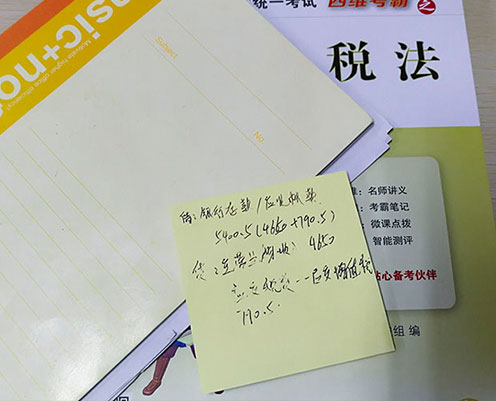 统一考试 四维考霸 之
税法
sic+no
Motivate higher office efficiency!
Subject
No
借：银行存款/应收账款
5440.5(4650+790.5)
贷：主营业务收入 4650
应交税费--应交增值税
790.5.
名师讲义
考霸笔记
微课点拨
智能测评
贴心备考伙伴
组 编